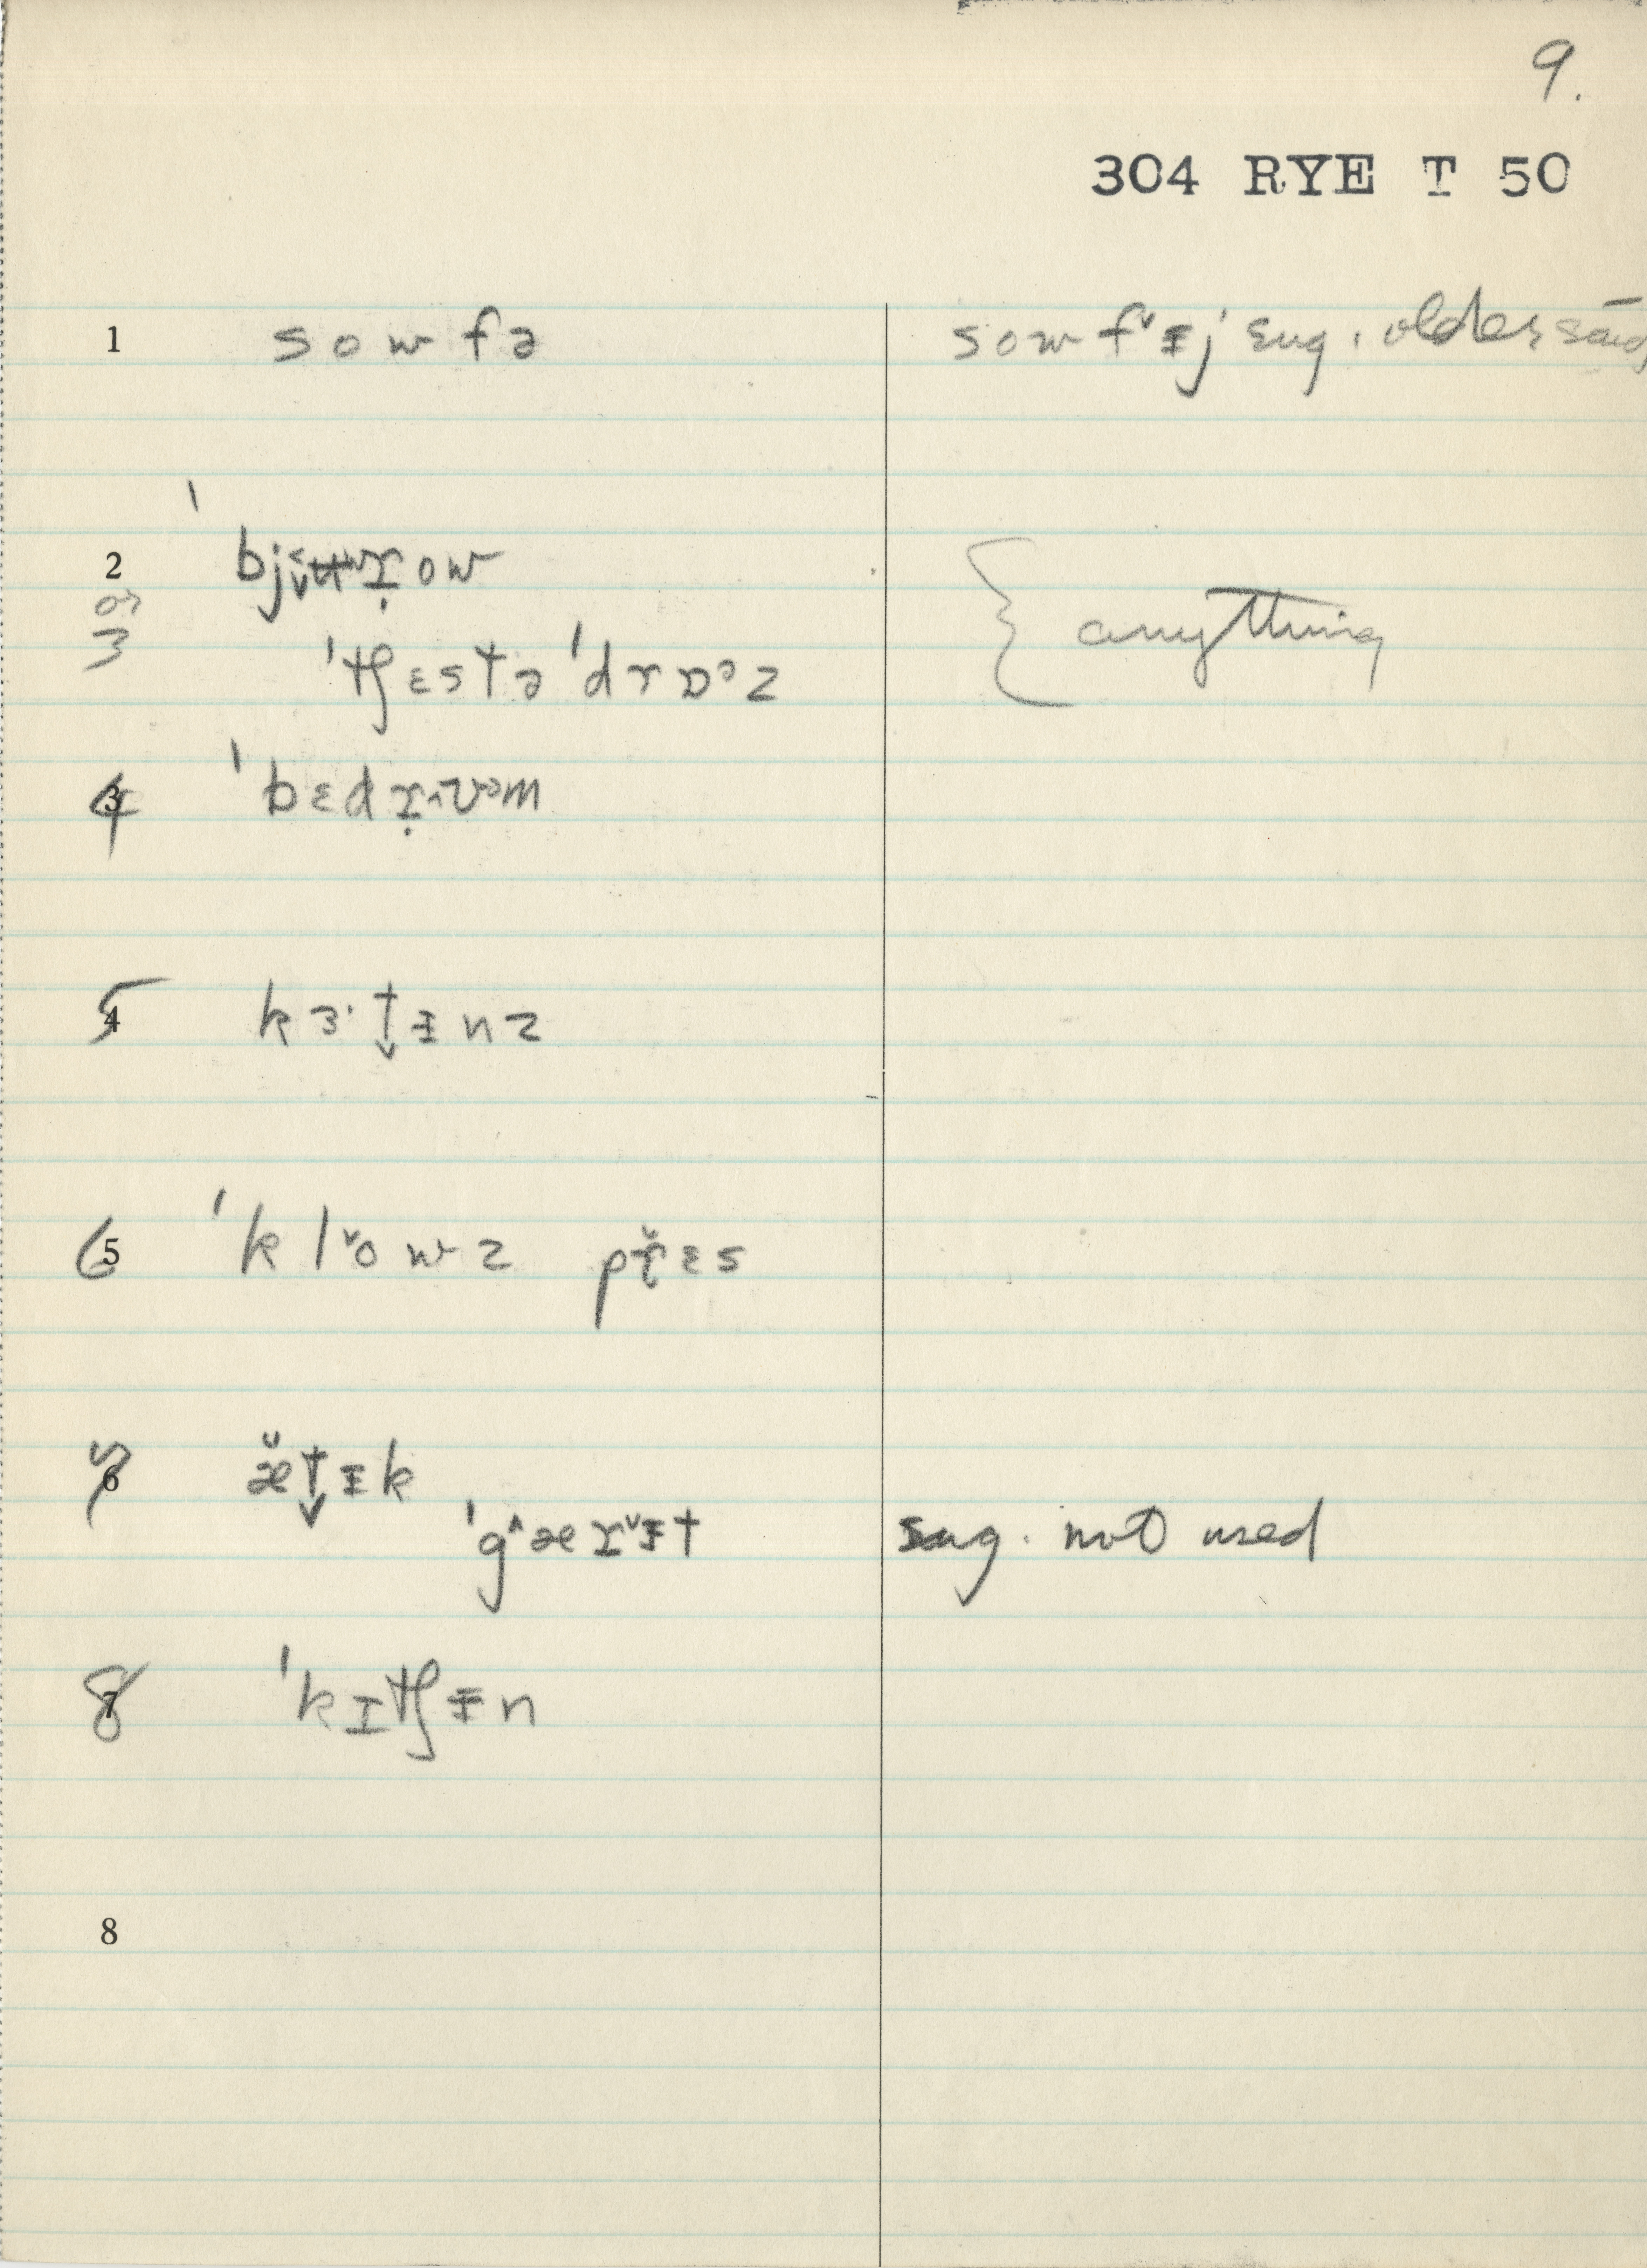 9.
304 RYE T 50
1 sowfə sowf˅ɨj sug. older said
2 ˈbjʉɤ̣ow
or
3 ˈtʃɛstə ˈdrɒᵊz { anything
4 3 ˈbɛdɤ̣ʌʊᵊm
5 4 kɜ·t̬ɨnz
6 5 ˈkl˅owz pɤ̌ɛs
7 6 æ̌t̬ɨk
ˈg^æɤ˅ɨt sug. not used
8 7 ˈkɪtʃɨn
8